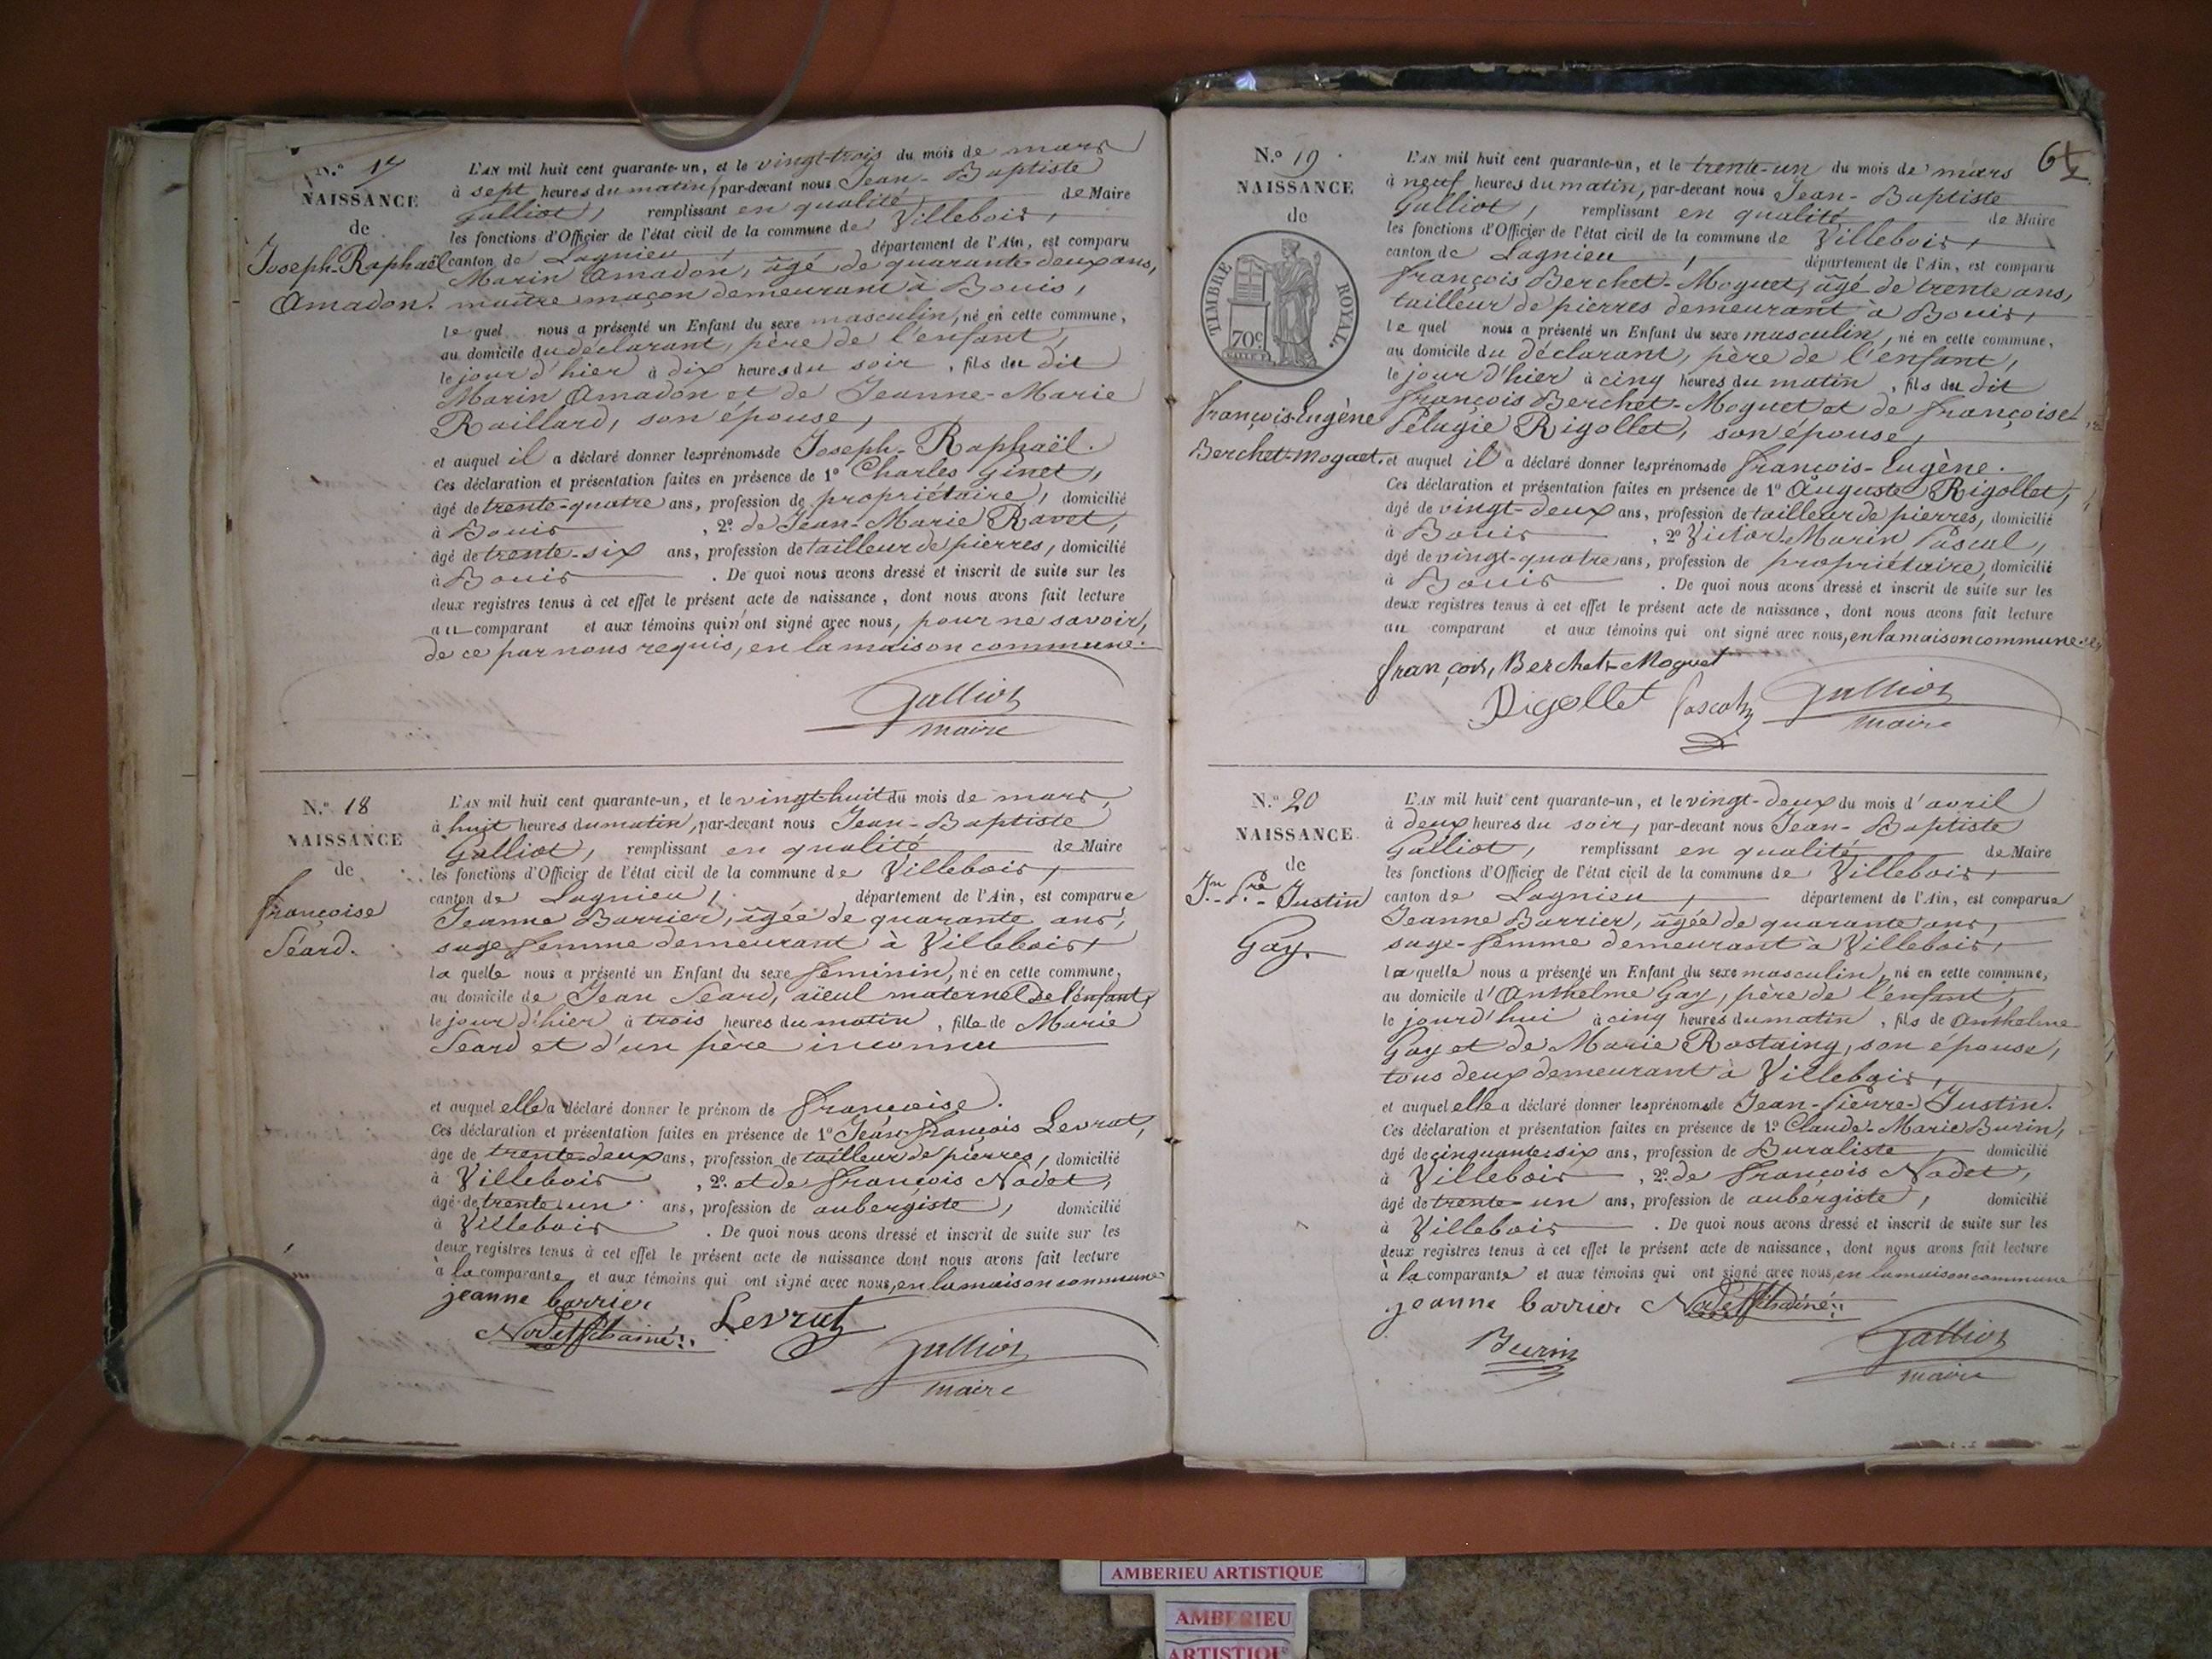 N.° 17
NAISSANCE
de
Joseph-Raphaël
Amadon.
L'AN mil huit cent quarante-un, et le vingt-trois du mois de mars
à sept heures du matin, par-devant nous Jean-Baptiste
Galliot, remplissant en qualité de Maire
les fonctions d'Officier de l'état civil de la commune de Villebois,
canton de Lagnieu, département de l'Ain, est comparu
Marin Amadon, âgé de quarante-deux ans,
maître maçon demeurant à Bouis,
le quel nous a présenté un Enfant du sexe masculin, né en cette commune,
au domicile du déclarant, père de l'enfant,
le jour d'hier à dix heures du soir, fils du dit
Marin Amadon et de Jeanne-Marie
Raillard, son épouse,
et auquel il a déclaré donner les prénoms de Joseph-Raphaël.
Ces déclaration et présentation faites en présence de 1° Charles Ginet,
âgé de trente-quatre ans, profession de propriétaire, domicilié
à Bouis, 2° de Jean-Marie Ravet,
âgé de trente-six ans, profession de tailleur de pierres, domicilié
à Bouis. De quoi nous avons dressé et inscrit de suite sur les
deux registres tenus à cet effet le présent acte de naissance, dont nous avons fait lecture
au comparant et aux témoins qui n'ont signé avec nous, pour ne savoir,
de ce par nous requis, en la maison commune.
Galliot
maire
N.° 18
NAISSANCE
de
françoise
Séard.
L'AN mil huit cent quarante-un, et le vingt-huit du mois de mars,
à huit heures du matin, par-devant nous Jean-Baptiste
Galliot, remplissant en qualité de Maire
les fonctions d'Officier de l'état civil de la commune de Villebois,
canton de Lagnieu, département de l'Ain, est comparue
Jeanne Barrier, âgée de quarante ans,
sage femme demeurant à Villebois,
la quelle nous a présenté un Enfant du sexe féminin, né en cette commune,
au domicile de Jean Séard, aïeul maternel de l'enfant,
le jour d'hier à trois heures du matin, fille de Marie
Séard et d'un père inconnu
et auquel elle a déclaré donner le prénom de françoise.
Ces déclaration et présentation faites en présence de 1° Jean-françois Levrat,
âgé de trente-deux ans, profession de tailleur de pierres, domicilié
à Villebois, 2° et de françois Nodet,
âgé de trente-un ans, profession de aubergiste, domicilié
à Villebois. De quoi nous avons dressé et inscrit de suite sur les
deux registres tenus à cet effet le présent acte de naissance dont nous avons fait lecture
à la comparante et aux témoins qui ont signé avec nous, en la maison commune
jeanne barrier
Nodet fils ainé Levrat
Galliot
maire
6
N.° 19
NAISSANCE
de
TIMBRE ROYAL.
70c
françois-Eugène
Berchet-Moguet.
L'AN mil huit cent quarante-un, et le trente-un du mois de mars
à neuf heures du matin, par-devant nous Jean-Baptiste
Galliot, remplissant en qualité de Maire
les fonctions d'Officier de l'état civil de la commune de Villebois,
canton de Lagnieu, département de l'Ain, est comparu
françois Berchet-Moguet, âgé de trente ans,
tailleur de pierres demeurant à Bouis,
le quel nous a présenté un Enfant du sexe masculin, né en cette commune,
au domicile du déclarant, père de l'enfant,
le jour d'hier à cinq heures du matin, fils du dit
françois Berchet-Moguet et de françoise
Pélagie Rigollet, son épouse,
et auquel il a déclaré donner les prénoms de françois-Eugène.
Ces déclaration et présentation faites en présence de 1° Auguste Rigollet,
âgé de vingt-deux ans, profession de tailleur de pierres, domicilié
à Bouis, 2° Victor-Marin Pascal,
âgé de vingt-quatre ans, profession de propriétaire, domicilié
à Bouis. De quoi nous avons dressé et inscrit de suite sur les
deux registres tenus à cet effet le présent acte de naissance, dont nous avons fait lecture
au comparant et aux témoins qui ont signé avec nous, en la maison commune
françois, Berchet-Moguet
Rigollet Pascal Galliot
maire
N.° 20
NAISSANCE
de
Jn-Pre-Justin
Gay.
L'AN mil huit cent quarante-un, et le vingt-deux du mois d'avril
à deux heures du soir, par-devant nous Jean-Baptiste
Galliot, remplissant en qualité de Maire
les fonctions d'Officier de l'état civil de la commune de Villebois,
canton de Lagnieu, département de l'Ain, est comparue
Jeanne Barrier, âgée de quarante ans,
sage-femme demeurant à Villebois,
la quelle nous a présenté un Enfant du sexe masculin, né en cette commune,
au domicile d'Anthelme Gay, père de l'enfant,
le jourd'hui à cinq heures du matin, fils de Anthelme
Gay et de Marie Rostaing, son épouse,
tous deux demeurant à Villebois,
et auquel elle a déclaré donner les prénoms de Jean-Pierre-Justin.
Ces déclaration et présentation faites en présence de 1° Claude-Marie Burin,
âgé de cinquante-six ans, profession de Buraliste, domicilié
à Villebois, 2° de françois Nodet,
âgé de trente-un ans, profession de aubergiste, domicilié
à Villebois. De quoi nous avons dressé et inscrit de suite sur les
deux registres tenus à cet effet le présent acte de naissance, dont nous avons fait lecture
à la comparante et aux témoins qui ont signé avec nous, en la maison commune
jeanne barrier Nodet fils ainé
Burin Galliot
maire
AMBERIEU ARTISTIQUE
AMBERIEU
ARTISTIQUE